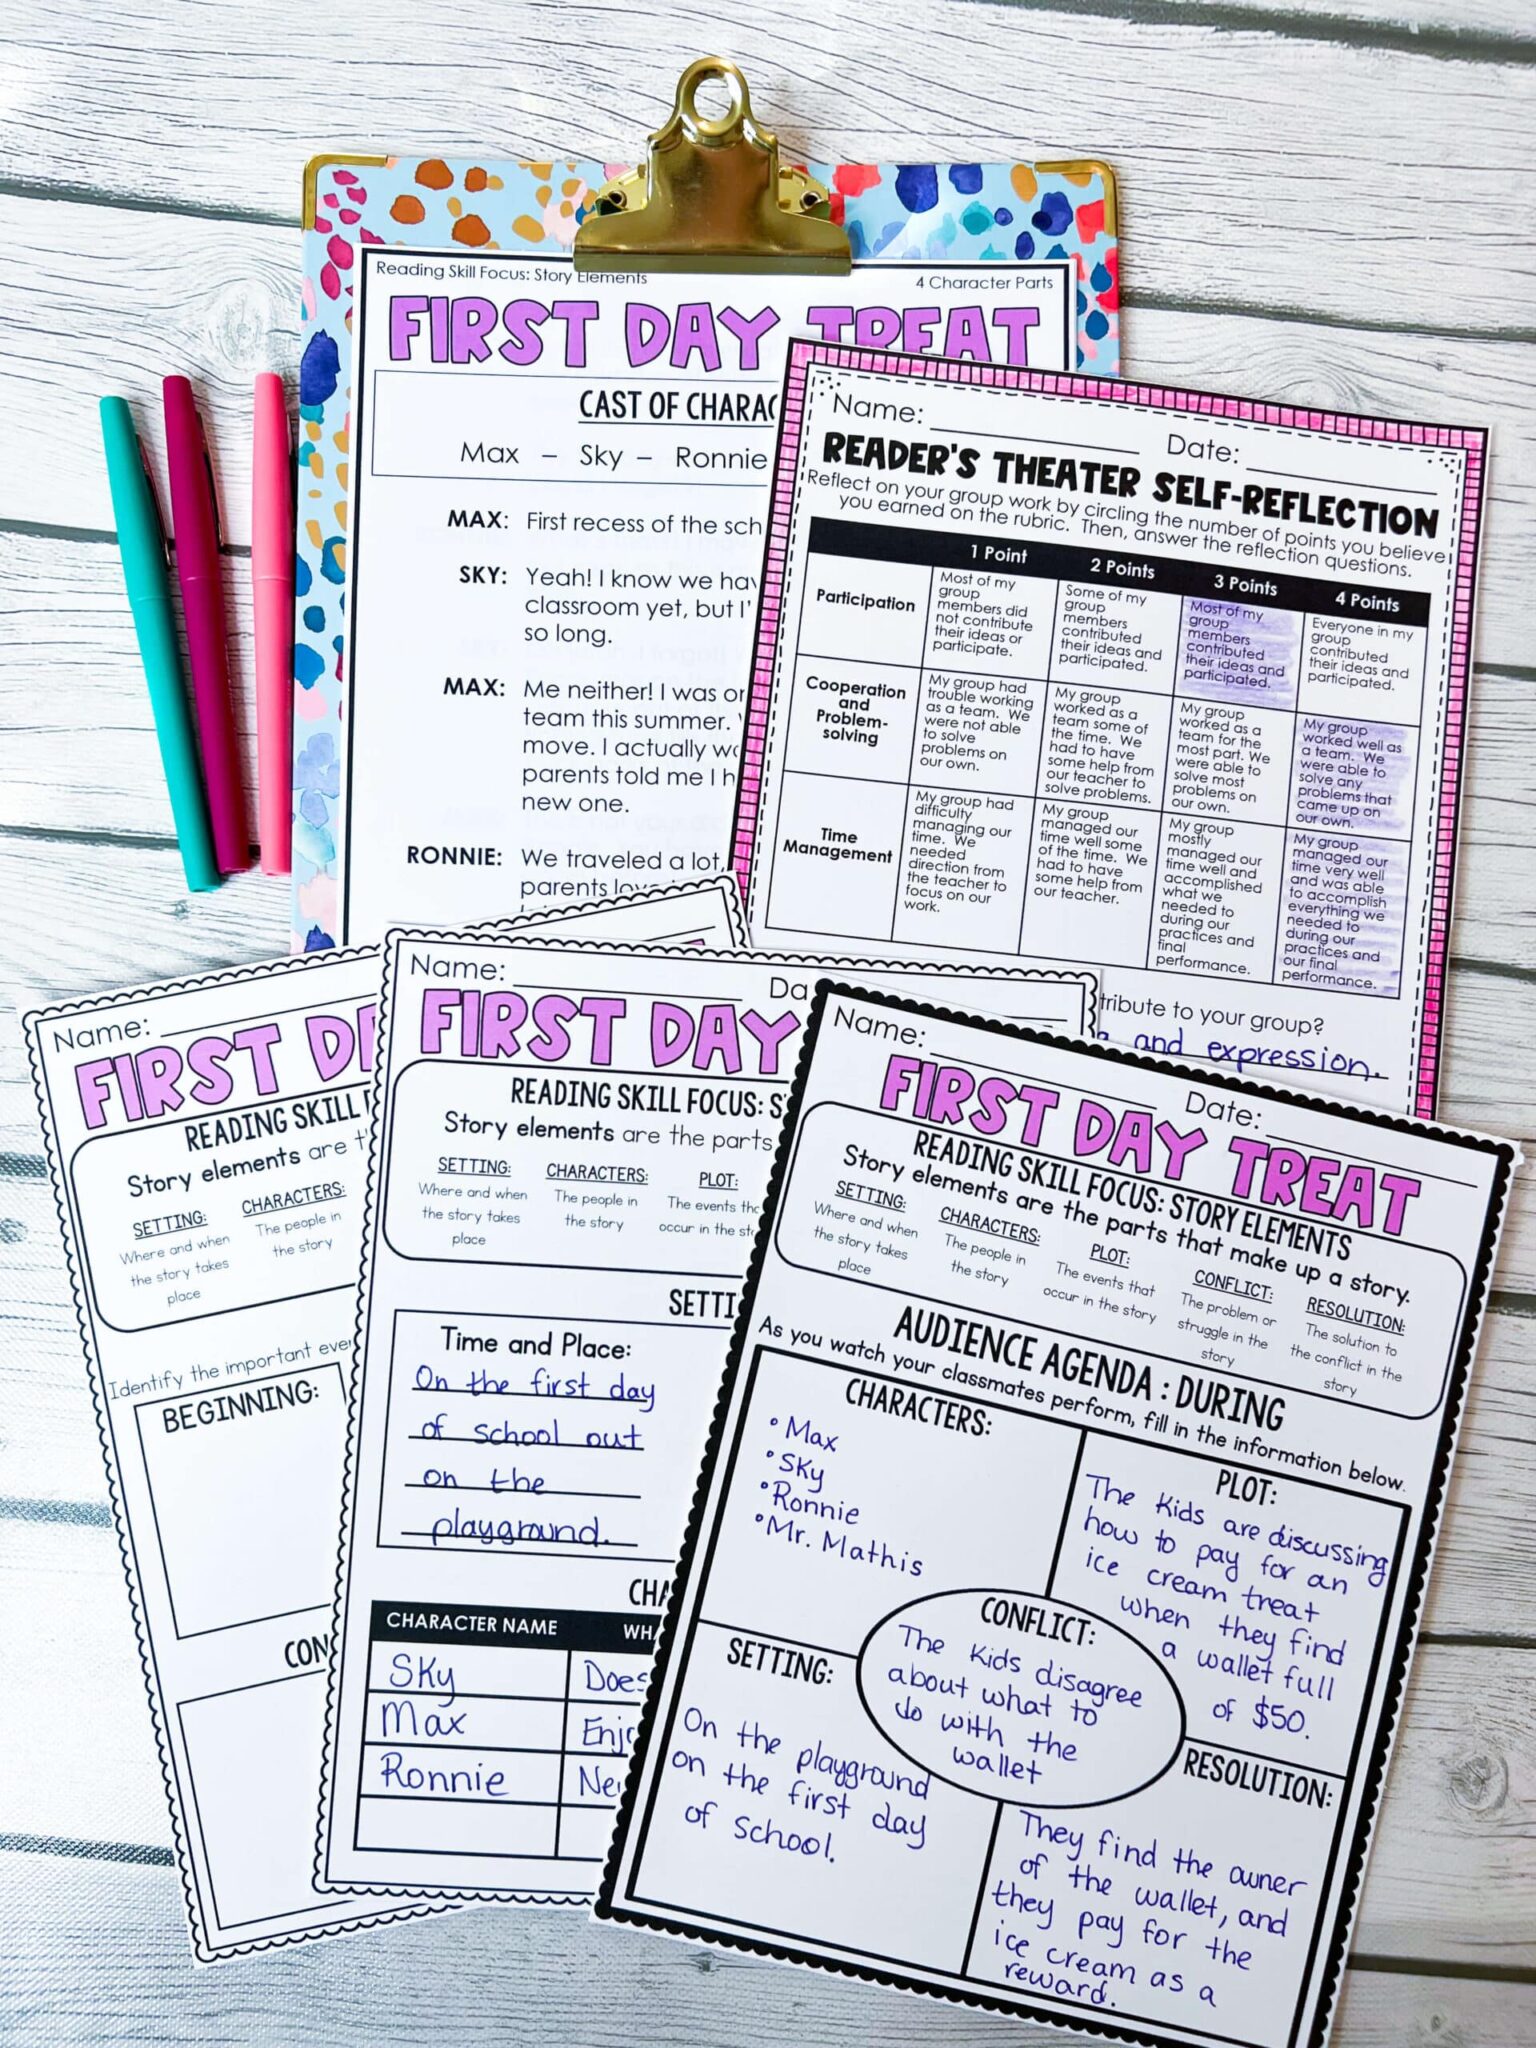 Reading Skill Focus: Story Elements
4 Character Parts
FIRST DAY TREAT
CAST OF CHARAC
Max – Sky – Ronnie
MAX: First recess of the sch
SKY: Yeah! I know we hav
classroom yet, but I'
so long.
MAX: Me neither! I was on
team this summer.
move. I actually wo
parents told me I h
new one.
RONNIE: We traveled a lot,
parents love
Name:
Date:
READER'S THEATER SELF-REFLECTION
Reflect on your group work by circling the number of points you believe
you earned on the rubric. Then, answer the reflection questions.
1 Point
2 Points
3 Points
4 Points
Participation
Most of my
group
members did
not contribute
their ideas or
participate.
Some of my
group
members
contributed
their ideas and
participated.
Most of my
group
members
contributed
their ideas and
participated.
Everyone in my
group
contributed
their ideas and
participated.
Cooperation
and
Problem-
solving
My group had
trouble working
as a team. We
were not able
to solve
problems on
our own.
My group
worked as a
team some of
the time. We
had to have
some help from
our teacher to
solve problems.
My group
worked as a
team for the
most part. We
were able to
solve most
problems on
our own.
My group
worked well as
a team. We
were able to
solve any
problems that
came up on
our own.
Time
Management
My group had
difficulty
managing our
time. We
needed
direction from
the teacher to
focus on our
work.
My group
managed our
time well some
of the time. We
had to have
some help from
our teacher.
My group
mostly
managed our
time well and
accomplished
what we
needed to
during our
practices and
final
performance.
My group
managed our
time very well
and was able
to accomplish
everything we
needed to
during our
practices and
our final
performance.
tribute to your group?
and expression.
Name:
FIRST D
READING SKILL F
Story elements are t
SETTING:
Where and when
the story takes
place
CHARACTERS:
The people in
the story
Identify the important eve
BEGINNING:
CON
Name:
Da
FIRST DAY
READING SKILL FOCUS: S
Story elements are the parts
SETTING:
Where and when
the story takes
place
CHARACTERS:
The people in
the story
PLOT:
The events tha
occur in the sto
SETTI
Time and Place:
On the first day
of school out
on the
playground.
CHA
CHARACTER NAME
WHA
Sky
Does
Max
Enjo
Ronnie
Ne
Name:
Date:
FIRST DAY TREAT
READING SKILL FOCUS: STORY ELEMENTS
Story elements are the parts that make up a story.
SETTING:
Where and when
the story takes
place
CHARACTERS:
The people in
the story
PLOT:
The events that
occur in the story
CONFLICT:
The problem or
struggle in the
story
RESOLUTION:
The solution to
the conflict in the
story
AUDIENCE AGENDA : DURING
As you watch your classmates perform, fill in the information below.
CHARACTERS:
• Max
• Sky
• Ronnie
• Mr. Mathis
PLOT:
The kids are discussing
how to pay for an
ice cream treat
when they find
a wallet full
of $50.
CONFLICT:
The kids disagree
about what to
do with the
wallet
SETTING:
On the playground
on the first day
of school.
RESOLUTION:
They find the owner
of the wallet, and
they pay for the
ice cream as a
reward.